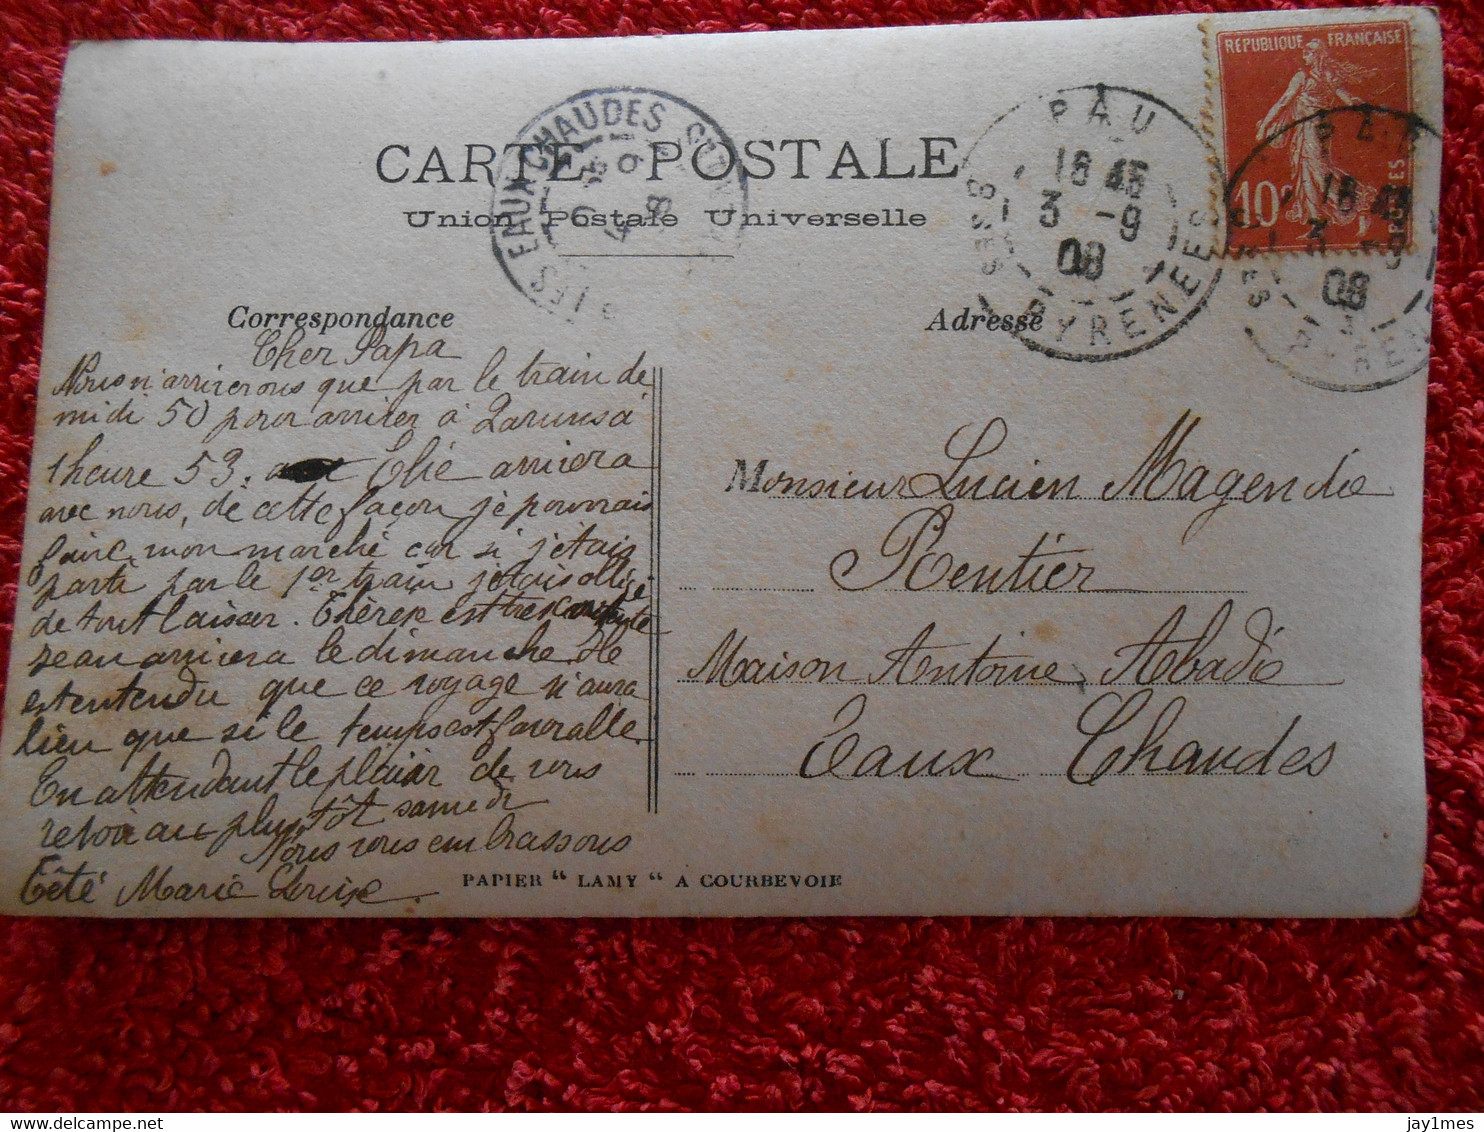 RÉPUBLIQUE FRANÇAISE
10c
POSTES
PAU
16 45
3 -9
08
BSSES PYRENEES
PAU
16 45
3 -9
08
PYRENEES
EAUX CHAUDES
CARTE POSTALE
Union Postale Universelle
Correspondance
Adresse
Cher Papa
Nous n'arriverons que par le train de
midi 50 pour arriver à Laruns à
1 heure 53. Elie arrivera
avec nous, de cette façon je pourrais
faire mon marché car si j'étais
partie par le 1er train j'étais obligé
de tout laisser. Thérèse est très contente
Jean arrivera le dimanche. Il
est entendu que ce voyage n'aura
lieu que si le temps est favorable.
En attendant le plaisir de vous
revoir au plus tôt samedi
Nous vous embrassons
Tété Marie Louise.
Monsieur Lucien Magendie
Rentier
Maison Antoine Abadie
Eaux Chaudes
PAPIER “ LAMY “ A COURBEVOIE
jay1mes